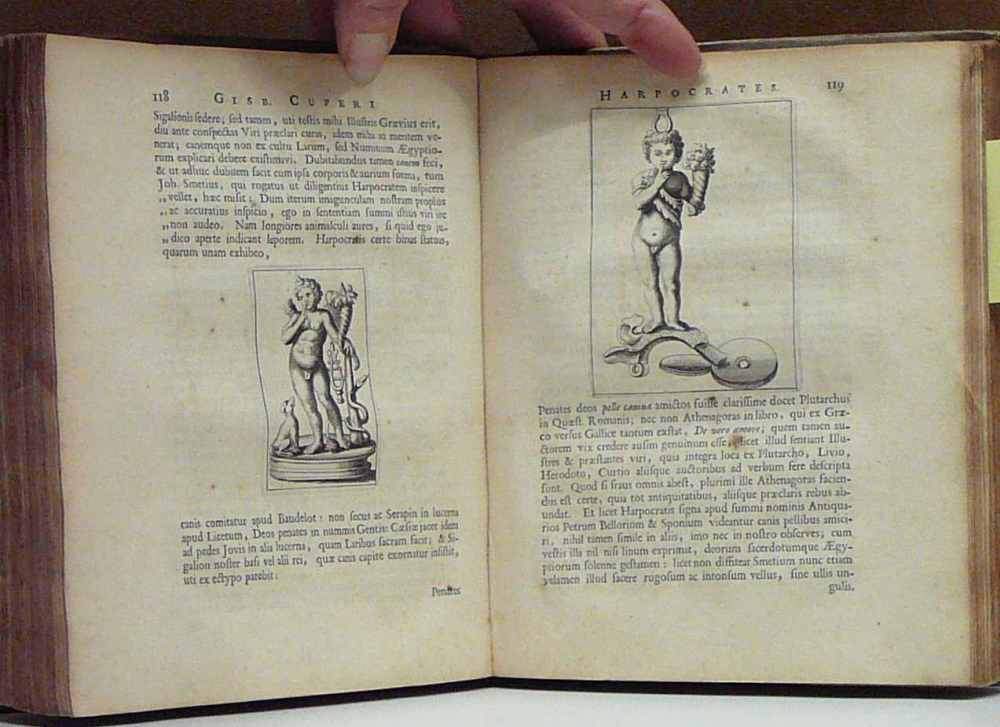 118 GISB. CUPERI
Sigalionis sedere; sed tamen, uti testis mihi Illustris Grævius erit,
diu ante conspectas Viri præclari curas, idem mihi in mentem ve-
nerat; canemque non ex cultu Larum, sed Numinum Ægyptio-
rum explicari debere existimavi. Dubitabundus tamen feci,
& ut adhuc dubitem facit cum ipsa corporis & aurium forma, tum
Joh. Smetius, qui rogatus ut diligentius Harpocratem inspicere
„ vellet, hæc misit; Dum iterum imagunculam nostram propius
„ ac accuratius inspicio, ego in sententiam summi istius viri ire
„ non audeo. Nam longiores animalculi aures, si quid ego ju-
„ dico aperte indicant leporem. Harpocratis certe binas statuas,
quarum unam exhibeo,
canis comitatur apud Baudelot: non secus ac Serapin in lucerna
apud Licetum, Deos penates in nummis Gentis Cæsiæ; jacet idem
ad pedes Jovis in alia lucerna, quam Laribus sacram facit; & Si-
galion noster basi vel alii rei, quæ canis capite exornatur insistit,
uti ex ectypo patebit:
Penates
HARPOCRATES. 119
Penates deos pelle canina amictos fuisse clarissime docet Plutarchus
in Quæst. Romanis; nec non Athenagoras in libro, qui ex Græ-
co versus Gallice tantum exstat, De vero amore; quem tamen au-
ctorem vix credere ausim genuinum esse, licet illud sentiant Illu-
stres & præstantes viri, quia integra loca ex Plutarcho, Livio,
Herodoto, Curtio aliisque auctoribus ad verbum fere descripta
sunt. Quod si fraus omnis abest, plurimi ille Athenagoras facien-
dus est certe, quia tot antiquitatibus, aliisque præclaris rebus ab-
undat. Et licet Harpocratis signa apud summi nominis Antiqua-
rios Petrum Bellorium & Sponium videantur canis pellibus amici-
ri, nihil tamen simile in aliis, imo nec in nostro observes; cum
vestis illa nil nisi linum exprimit, deorum sacerdotumque Ægy-
ptiorum solenne gestamen: licet non diffitear Smetium nunc etiam
velamen illud facere rugosum ac intonsum vellus, sine ullis un-
gulis.